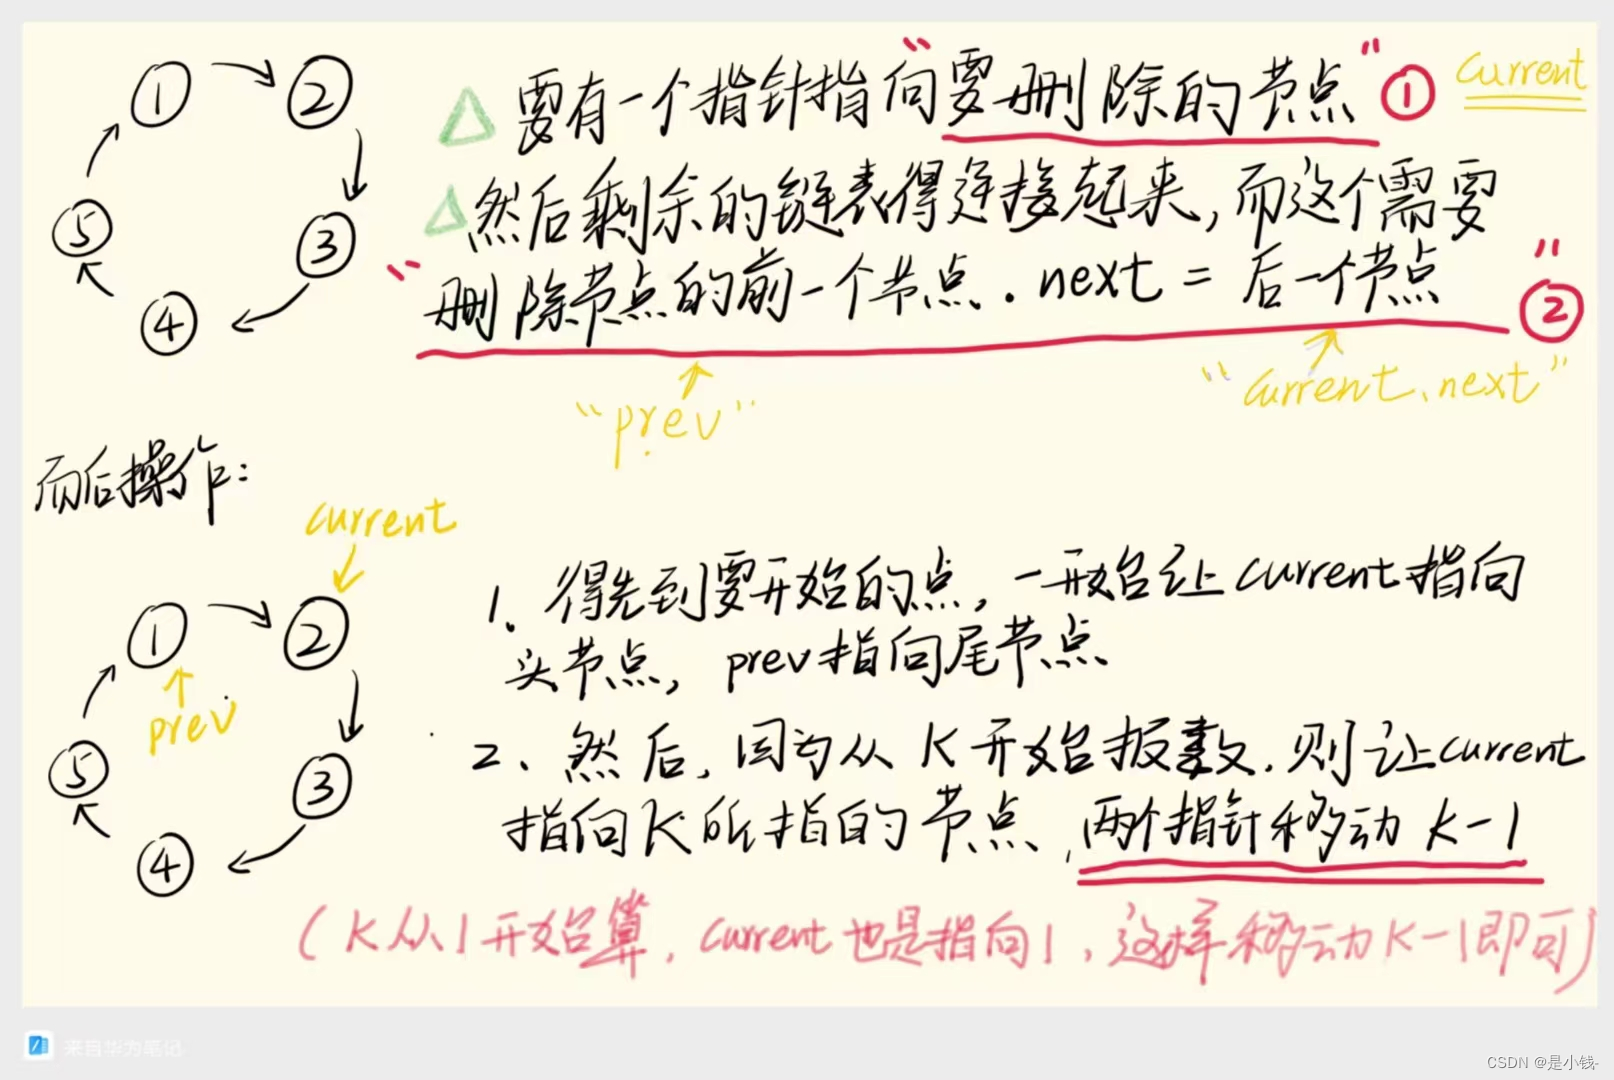 ① → ②
△ 要有一个指针指向"要删除的节点" ① current
△ 然后剩余的链表得连接起来,而这个需要
⑤ ③
"删除节点的前一个节点.next = 后一个节点" ②
④
"prev" "current.next"
而后操作:
current
1、得先到要开始的点,一开始让current指向
① ②
头节点,prev指向尾节点
prev
2、然后,因为从K开始报数,则让current
⑤ ③
指向K所指的节点,两个指针移动K-1
④
(K从1开始算,current也是指向1,这样移动K-1即可)
来自华为笔记
CSDN @是小钱-